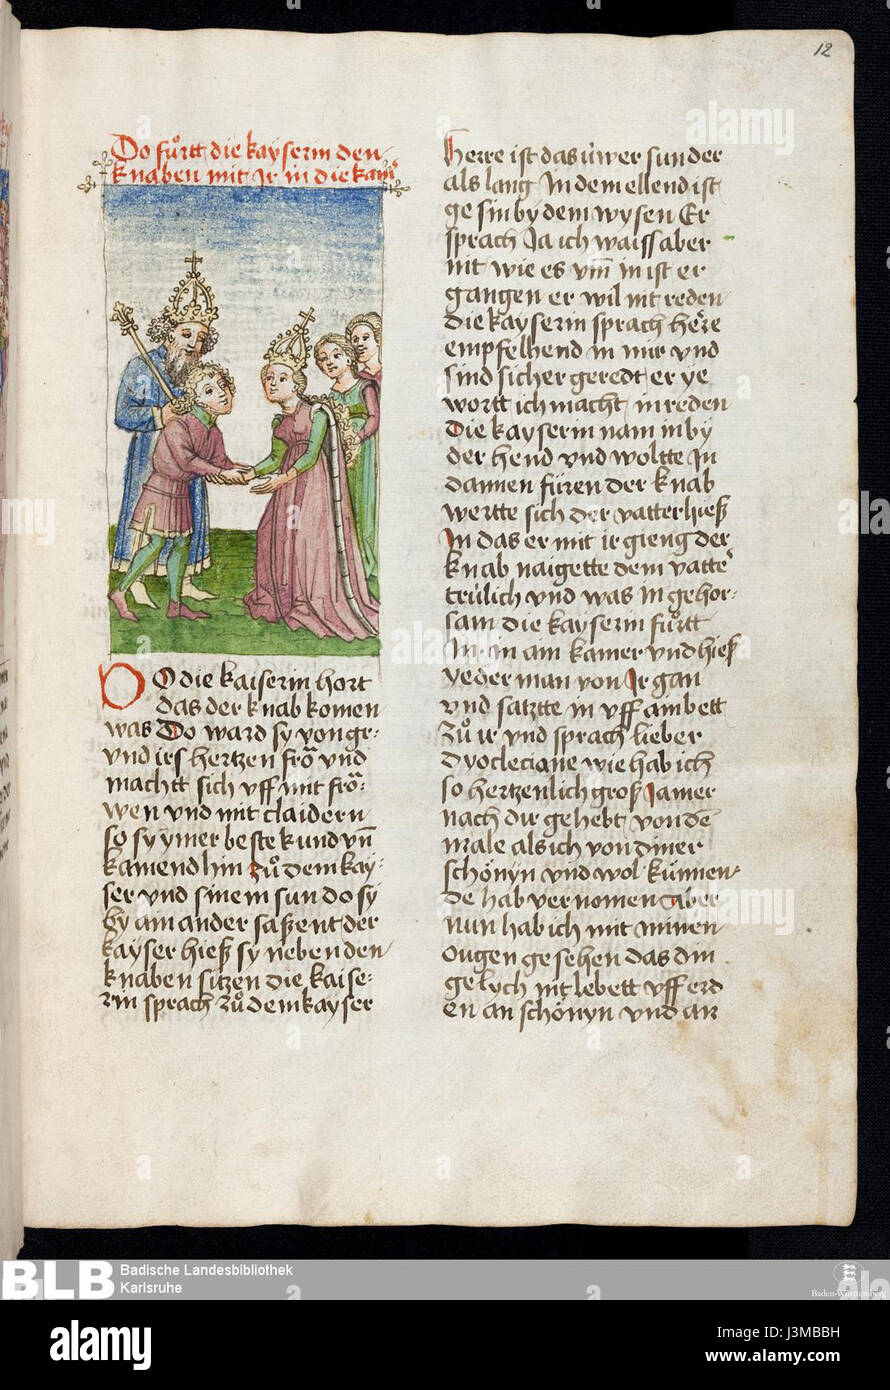 12
Do fuͦrtt die kayserin den
knaben mit Jr in die kam̄
DO die kaiserin hort
das der knab komen
was Do ward sy von gr-
vnd irs hertzen fro vnd
machtt sich vff mit fro-
wen vnd mit claidern
so sy ymer beste kund vn̄
kamend hin zuͦ dem kay-
ser vnd sinem sun do sy
by ain ander saßent der
kayser hieß sy neben den
knaben sitzen die kaise-
rin sprach zuͦ dem kayser
herre ist das úwer sun der
als lang Jn dem ellend ist
gesin by dem wysen Er
sprach Ja ich waiss aber
nit wie es vm̄ in ist er
gangen er wil nit reden
die kayserin sprach here
empfelhend in mir vnd
sind sicher geredt er ye
wortt ich macht in reden
die kayserin nam in by
der hend vnd woltte Jn
dannen füren der knab
wertte sich der vatter hieß
Jn das er mit ir gieng der
knab naigette dem vatte
trúlich vnd was Jn gehor-
sam die kayserin fuͦrtt
Jn in ain kamer vnd hieß
yederman von Jr gan
vnd satztte in vff ain bett
zuͦ ir vnd sprach lieber
dyocleciane wie hab ich
so hertzenlich groß Jamer
nach dir gehebt von dē
male als ich von diner
schönyn vnd wol kúnnen-
de hab vernomen aber
nun hab ich mit minen
ougen gesehen das din
gelych nit lebett vff erd
en an schönyn vnd an
BLB
Badische Landesbibliothek
Karlsruhe
Baden-Württemberg
alamy
Image ID: J3MBBH
www.alamy.com